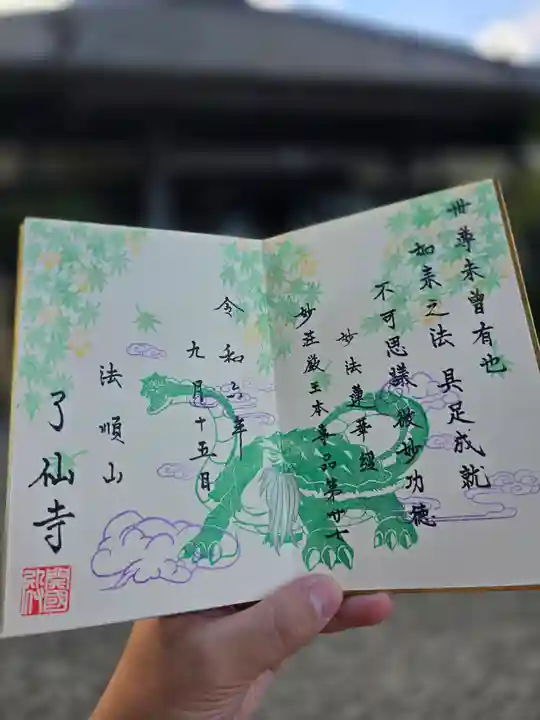 世尊未曾有也
如来之法具足成就
不可思議微妙功徳
妙法蓮華経
妙荘厳王本事品第廿七
令和六年
九月十五日
法順山
了仙寺